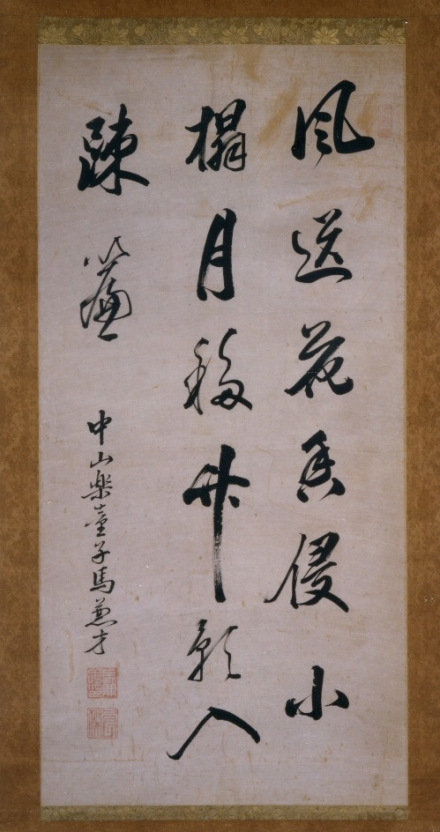 風送花香侵小
榻月移竹影入
疎簾
中山樂童子馬兼才